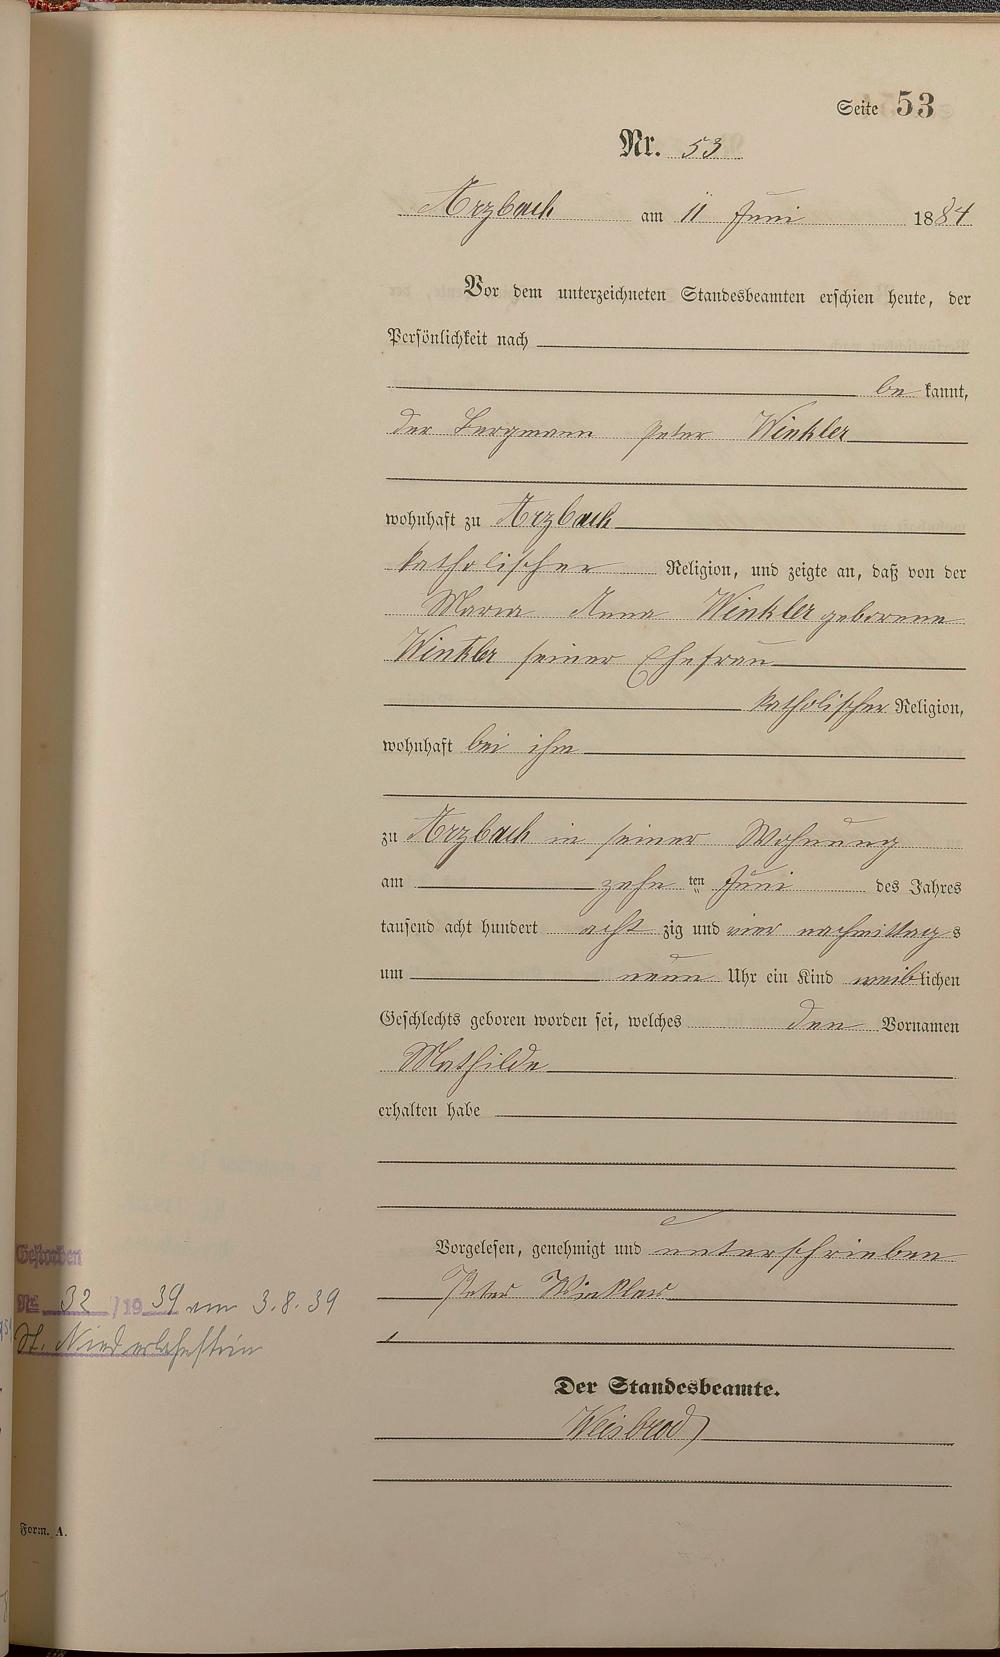 Seite 53
Nr. 53
Arzbach am 11 Juni 1884
Vor dem unterzeichneten Standesbeamten erschien heute, der
Persönlichkeit nach
be kannt,
der Bergmann Peter Winkler
wohnhaft zu Arzbach
katholischer Religion, und zeigte an, daß von der
Maria Anna Winkler geborene
Winkler seiner Ehefrau
katholischer Religion,
wohnhaft bei ihm
zu Arzbach in seiner Wohnung
am zehn ten Juni des Jahres
tausend acht hundert acht zig und vier nachmittags
um neun Uhr ein Kind weiblichen
Geschlechts geboren worden sei, welches den Vornamen
Mathilde
erhalten habe
Vorgelesen, genehmigt und unterschrieben
Peter Winkler
Gestorben
Nr. 32 /1939 am 3.8.39
St. Niederlahnstein
Der Standesbeamte.
Weisbrod
Form. A.